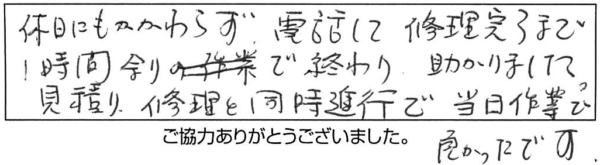 休日にもかかわらず、電話して修理完了まで
1時間余りので終わり、助かりました
見積り、修理と同時進行で当日作業で
良かったです.
ご協力ありがとうございました。